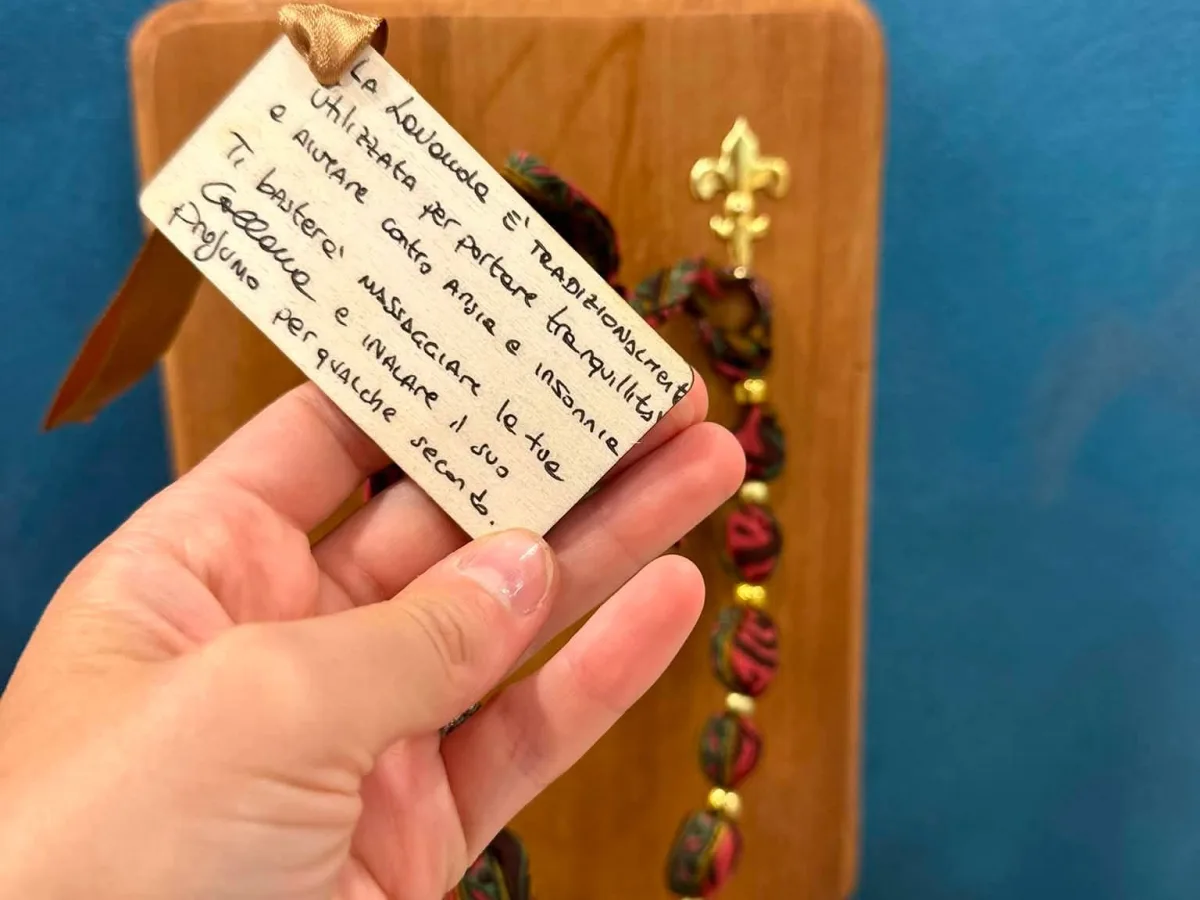 LA Lavanda E' TRADIZIONALMENTE
UTILIZZATA per portare tranquillità
e AIUTARE contro ANSIA e INSONNIA
Ti basterà MASSAGGIARE la tue
Collana e INALARE il suo
PROFUMO per qualche secondo.